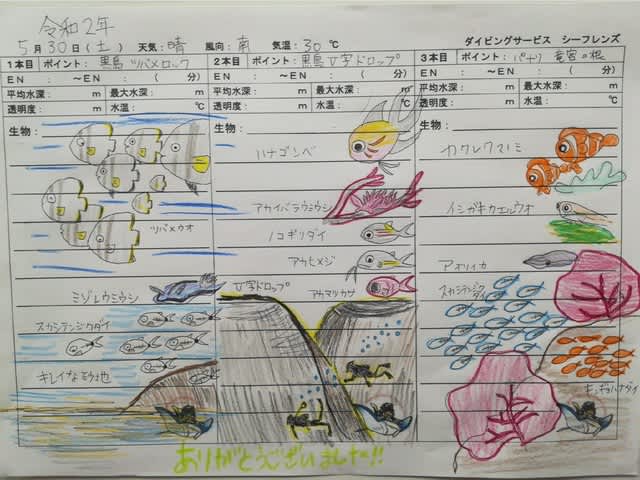 令和2年
5月30日(土) 天気:晴 風向:南 気温:30℃ ダイビングサービス シーフレンズ
1本目 ポイント:黒島 ツバメロック
EN : 〜EN : ( 分)
平均水深: m 最大水深: m
透明度: m 水温: ℃
生物:
ツバメウオ
ミゾレウミウシ
スカシテンジクダイ
キレイな砂地
2本目 ポイント:黒島V字ドロップ
EN : 〜EN : ( 分)
平均水深: m 最大水深: m
透明度: m 水温: ℃
生物:
ハナゴンベ
アカイバラウミウシ
ノコギリダイ
アカヒメジ
V字ドロップ
アカマツカサ
3本目 ポイント:パナリ 竜宮の根
EN : 〜EN : ( 分)
平均水深: m 最大水深: m
透明度: m 水温: ℃
生物:
カクレクマノミ
イシガキカエルウオ
アオリイカ
スカシテンジクダイ
キンギョハナダイ
ありがとうございました!!